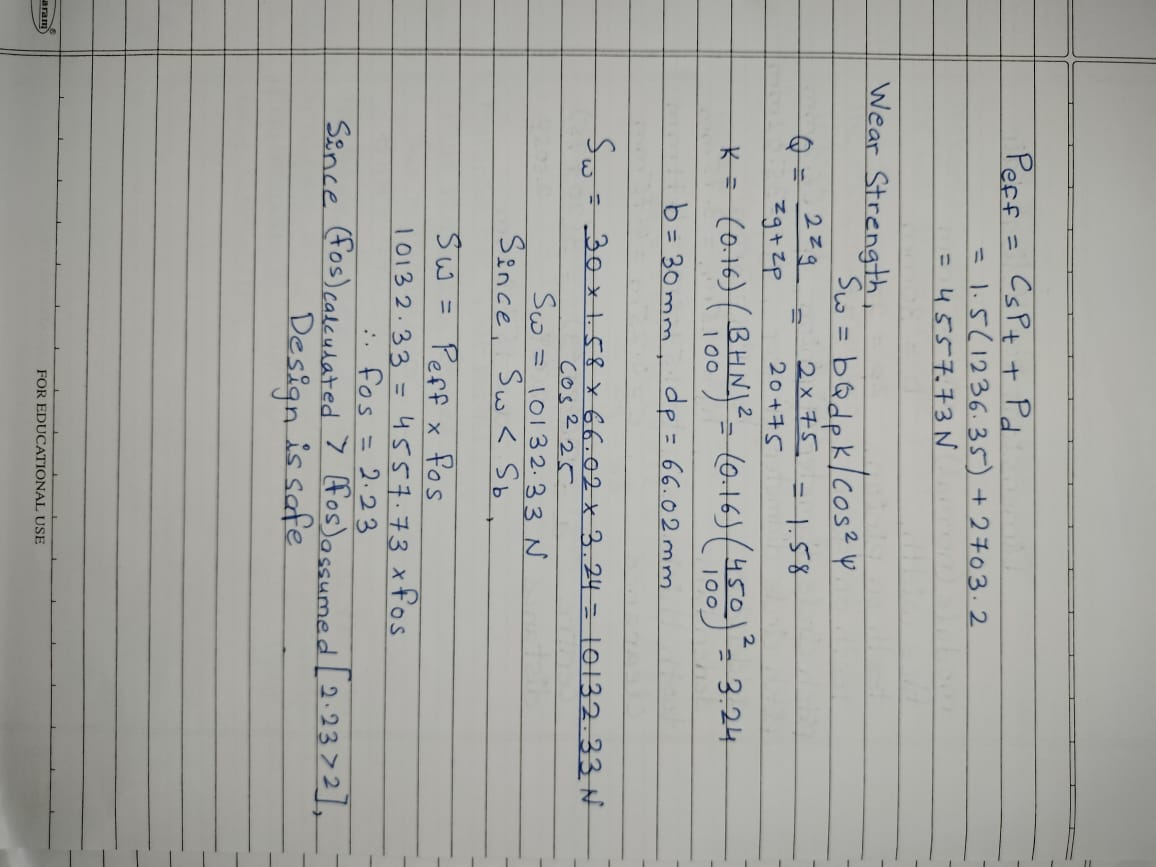 Peff = CsPt + Pd
= 1.5(1236.35) + 2703.2
= 4557.73 N
Wear Strength,
Sw = bQdpK/cos²ψ
Q = 2zg/zg+zp = 2×75/20+75 = 1.58
K = (0.16)(BHN/100)² = (0.16)(450/100)² = 3.24
b = 30mm, dp = 66.02mm
Sw = 30×1.58×66.02×3.24/cos²25 = 10132.33 N
Sw = 10132.33 N
Since, Sw < Sb,
Sw = Peff × fos
10132.33 = 4557.73 × fos
∴ fos = 2.23
Since (fos)calculated > (fos)assumed [2.23>2],
Design is safe.
FOR EDUCATIONAL USE
aram®